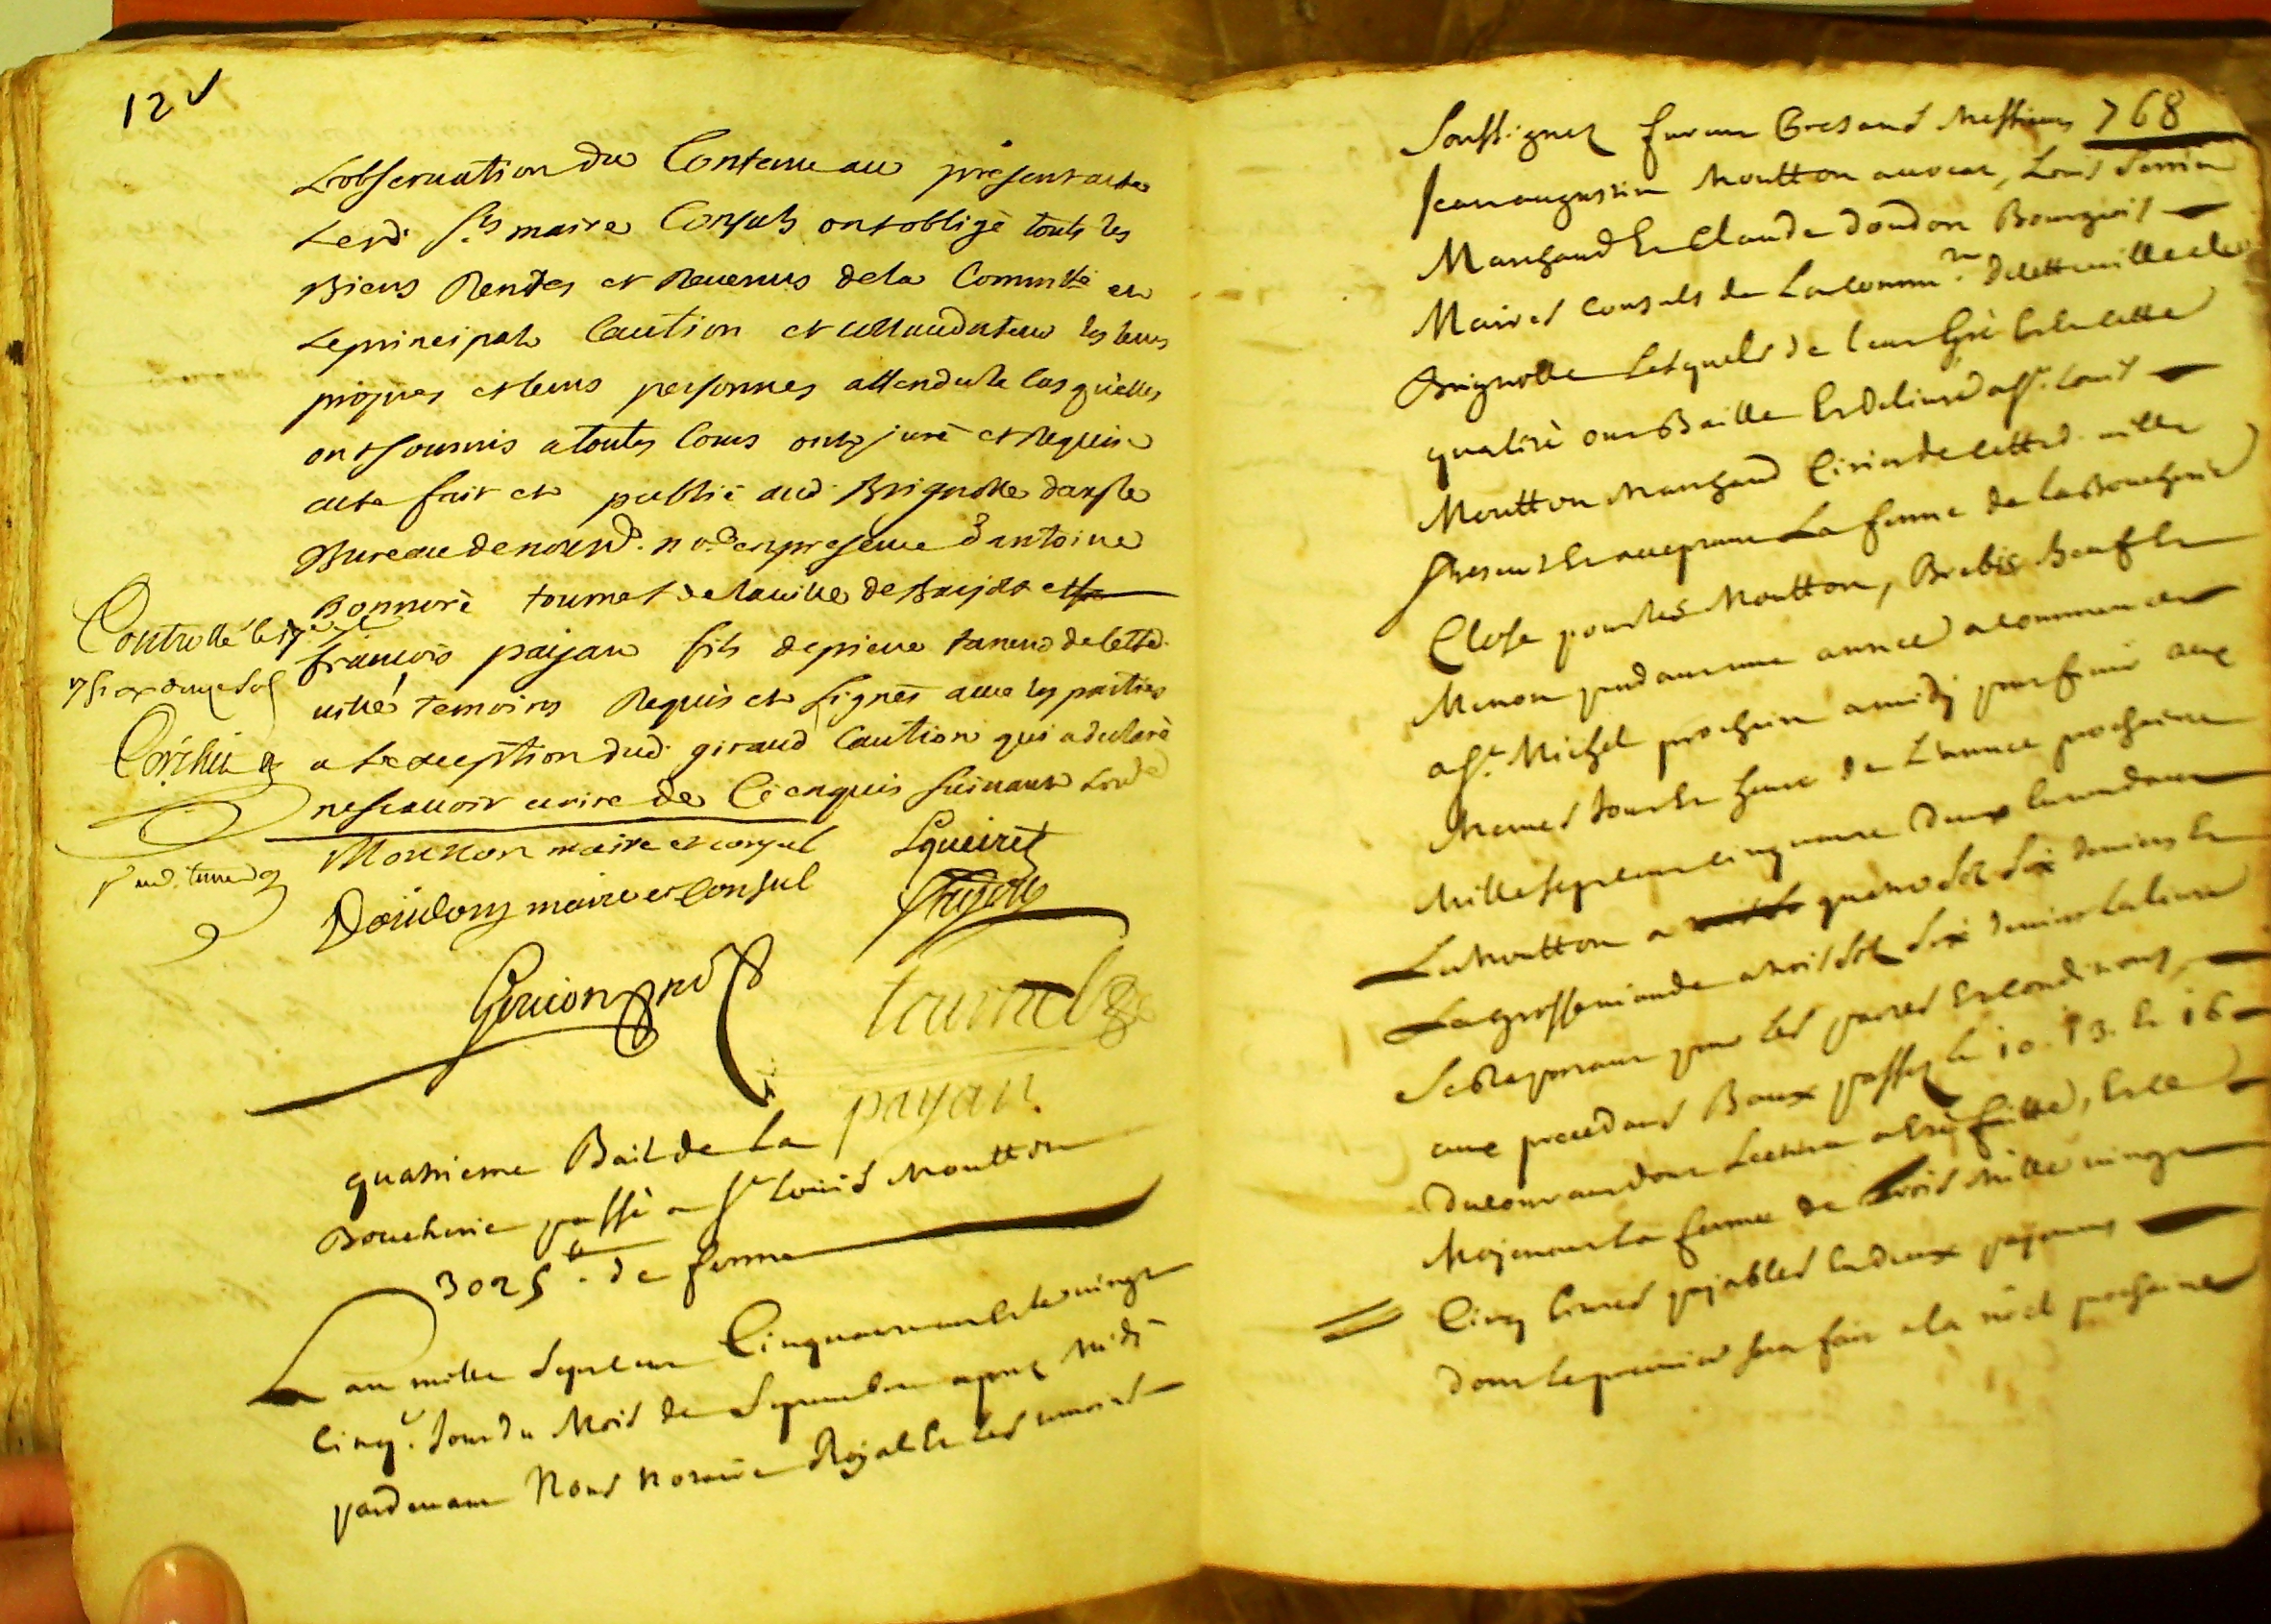 12 v
L'observation du Contenu au present acte
Lesd. Srs maire Consuls ont obligé touts les
Biens Rentes et Revenus de la Commté et
Le principal Caution et les leurs
propres et leurs personnes attendu le cas qu'elles
ont soumis a toutes Cours ont juré et Requis
acte fait et publié aud. Brignolle dans le
Bureau de nousd. nore en presence d'antoine
Bonnoré tournel de la ville de
françois payan fils de pierre taneur de cette
ville temoins Requis et signés avec les parties
a Lexception dud. giraud Caution qui a declaré
ne scavoir ecrire de Ce enquis suivant Lord.
Controllé le
douze sols
Moutton maire et consul
Doudon maire et consul
Gouion
tournel
payan
quatrieme Bail de La
Boucherie passé a Sr Louis Moutton
3025 ll. de ferme
L'an mille Sept cent Cinquante un et le vingt
Cinqe. Jour du Mois de Septembre apres Midi
pardevant Nous Notaire Royal et les temoins
768
Soussignez furent presants Messieurs
Jean augustin Moutton avocat, Louis
Marchand Et Claude doudon Bourgois
Maires Consuls de La commte. de cette ville de
Brignolle Lesquels de leur Gré Et en cette
qualité ont Baillé Et Delivré a Sr. Louis
Moutton Marchand Cirier de cette d. ville
present Et acceptant La ferme de La Boucherie
Close pour les Moutton, Brebis Boeuf Et
Menon pendant une année a commencer
a St. Michel prochain a midi pour finir aux
Memes Jour Et heure de L'année prochaine
Mille sept cent cinquante Deux En vendant
Le Moutton a quatre sols Six deniers Et
La grosse viande a trois sols Six deniers La livre
Se Raportant pour les pactes Et conditions
aux precedants Baux passez le 10. 13. Et 16
Du courant dont Lecture a Eté faitte, Et ce
Mojenant La ferme de Trois Mille vingt
Cinq Livres pajables En deux pajements
dont Le premier sera fait a la noel prochaine